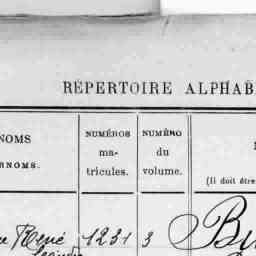 RÉPERTOIRE ALPHAB
NOMS
RNOMS.
NUMÉROS
ma-
tricules.
NUMÉRO
du
volume.
(Il doit être
René 1231 3 Bu